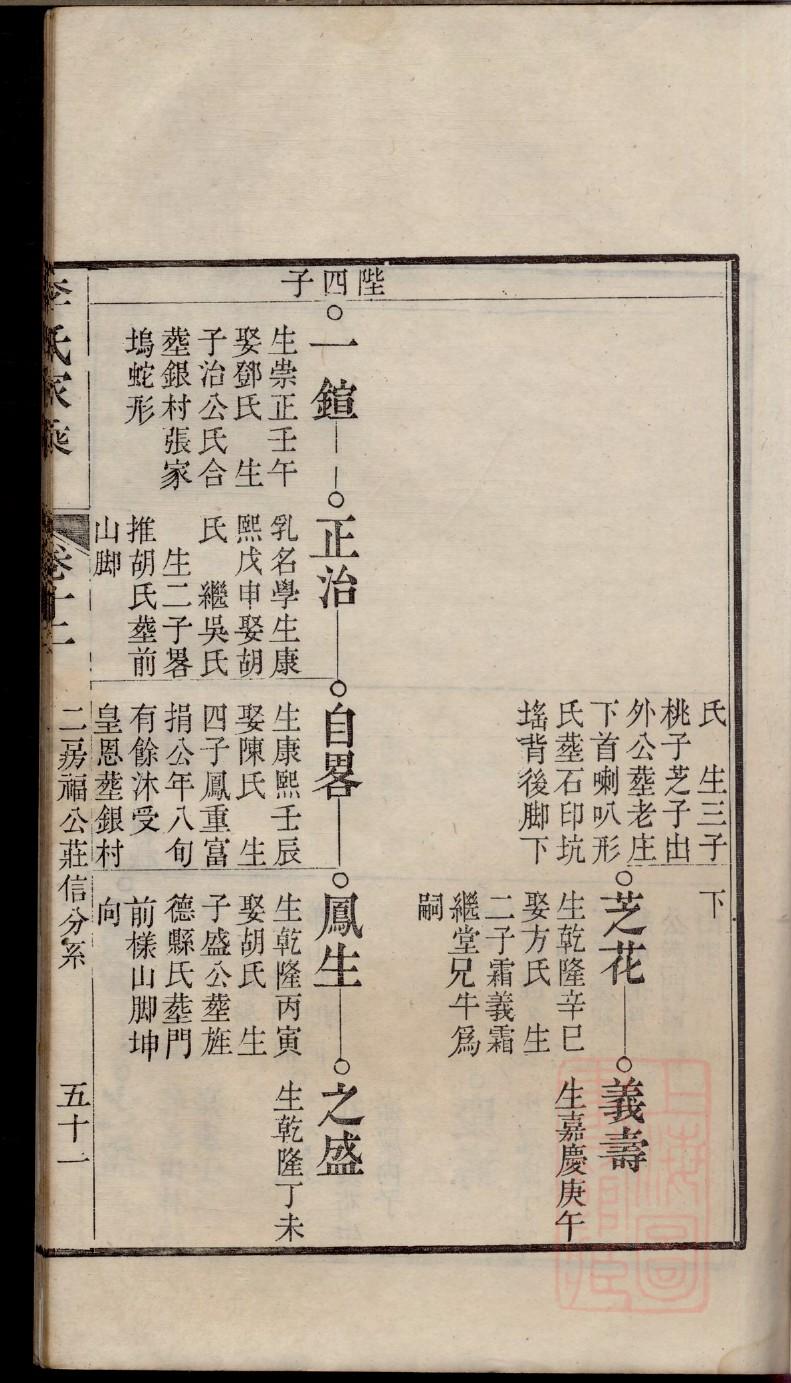 氏　生三子
桃子芝子出
外公塟老庄
下首喇叭形
氏塟石印坑
墧背後脚下
下
芝花
生乾隆辛巳
娶方氏　生
二子霜義霜
繼堂兄牛爲
嗣
義壽
生嘉慶庚午
陛四子
一鍹
生崇正壬午
娶鄧氏　生
子治公氏合
塟銀村張家
塢蛇形
正治
乳名學生康
熙戊申娶胡
氏　繼吳氏
生二子畧
推胡氏塟前
山脚
自畧
生康熙壬辰
娶陳氏　生
四子鳳重富
捐公年八旬
有餘沐受
皇恩塟銀村
鳳生
生乾隆丙寅
娶胡氏　生
子盛公塟旌
德縣氏塟門
前樣山脚坤
向
之盛
生乾隆丁未
李氏家乘
卷十二
二房福公莊信分系
五十一